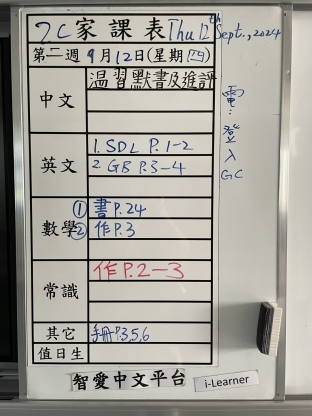 7C家課表 Thu 12th Sept., 2024
第二週 9月12日(星期四)
中文 溫習默書及進評
英文 1. SDL P.1-2
2 GB P.3-4
數學 ① 書P.24
② 作P.3
常識 作P.2-3
其它 手冊P.3,5,6
值日生
電:登入GC
智愛中文平台
i-Learner